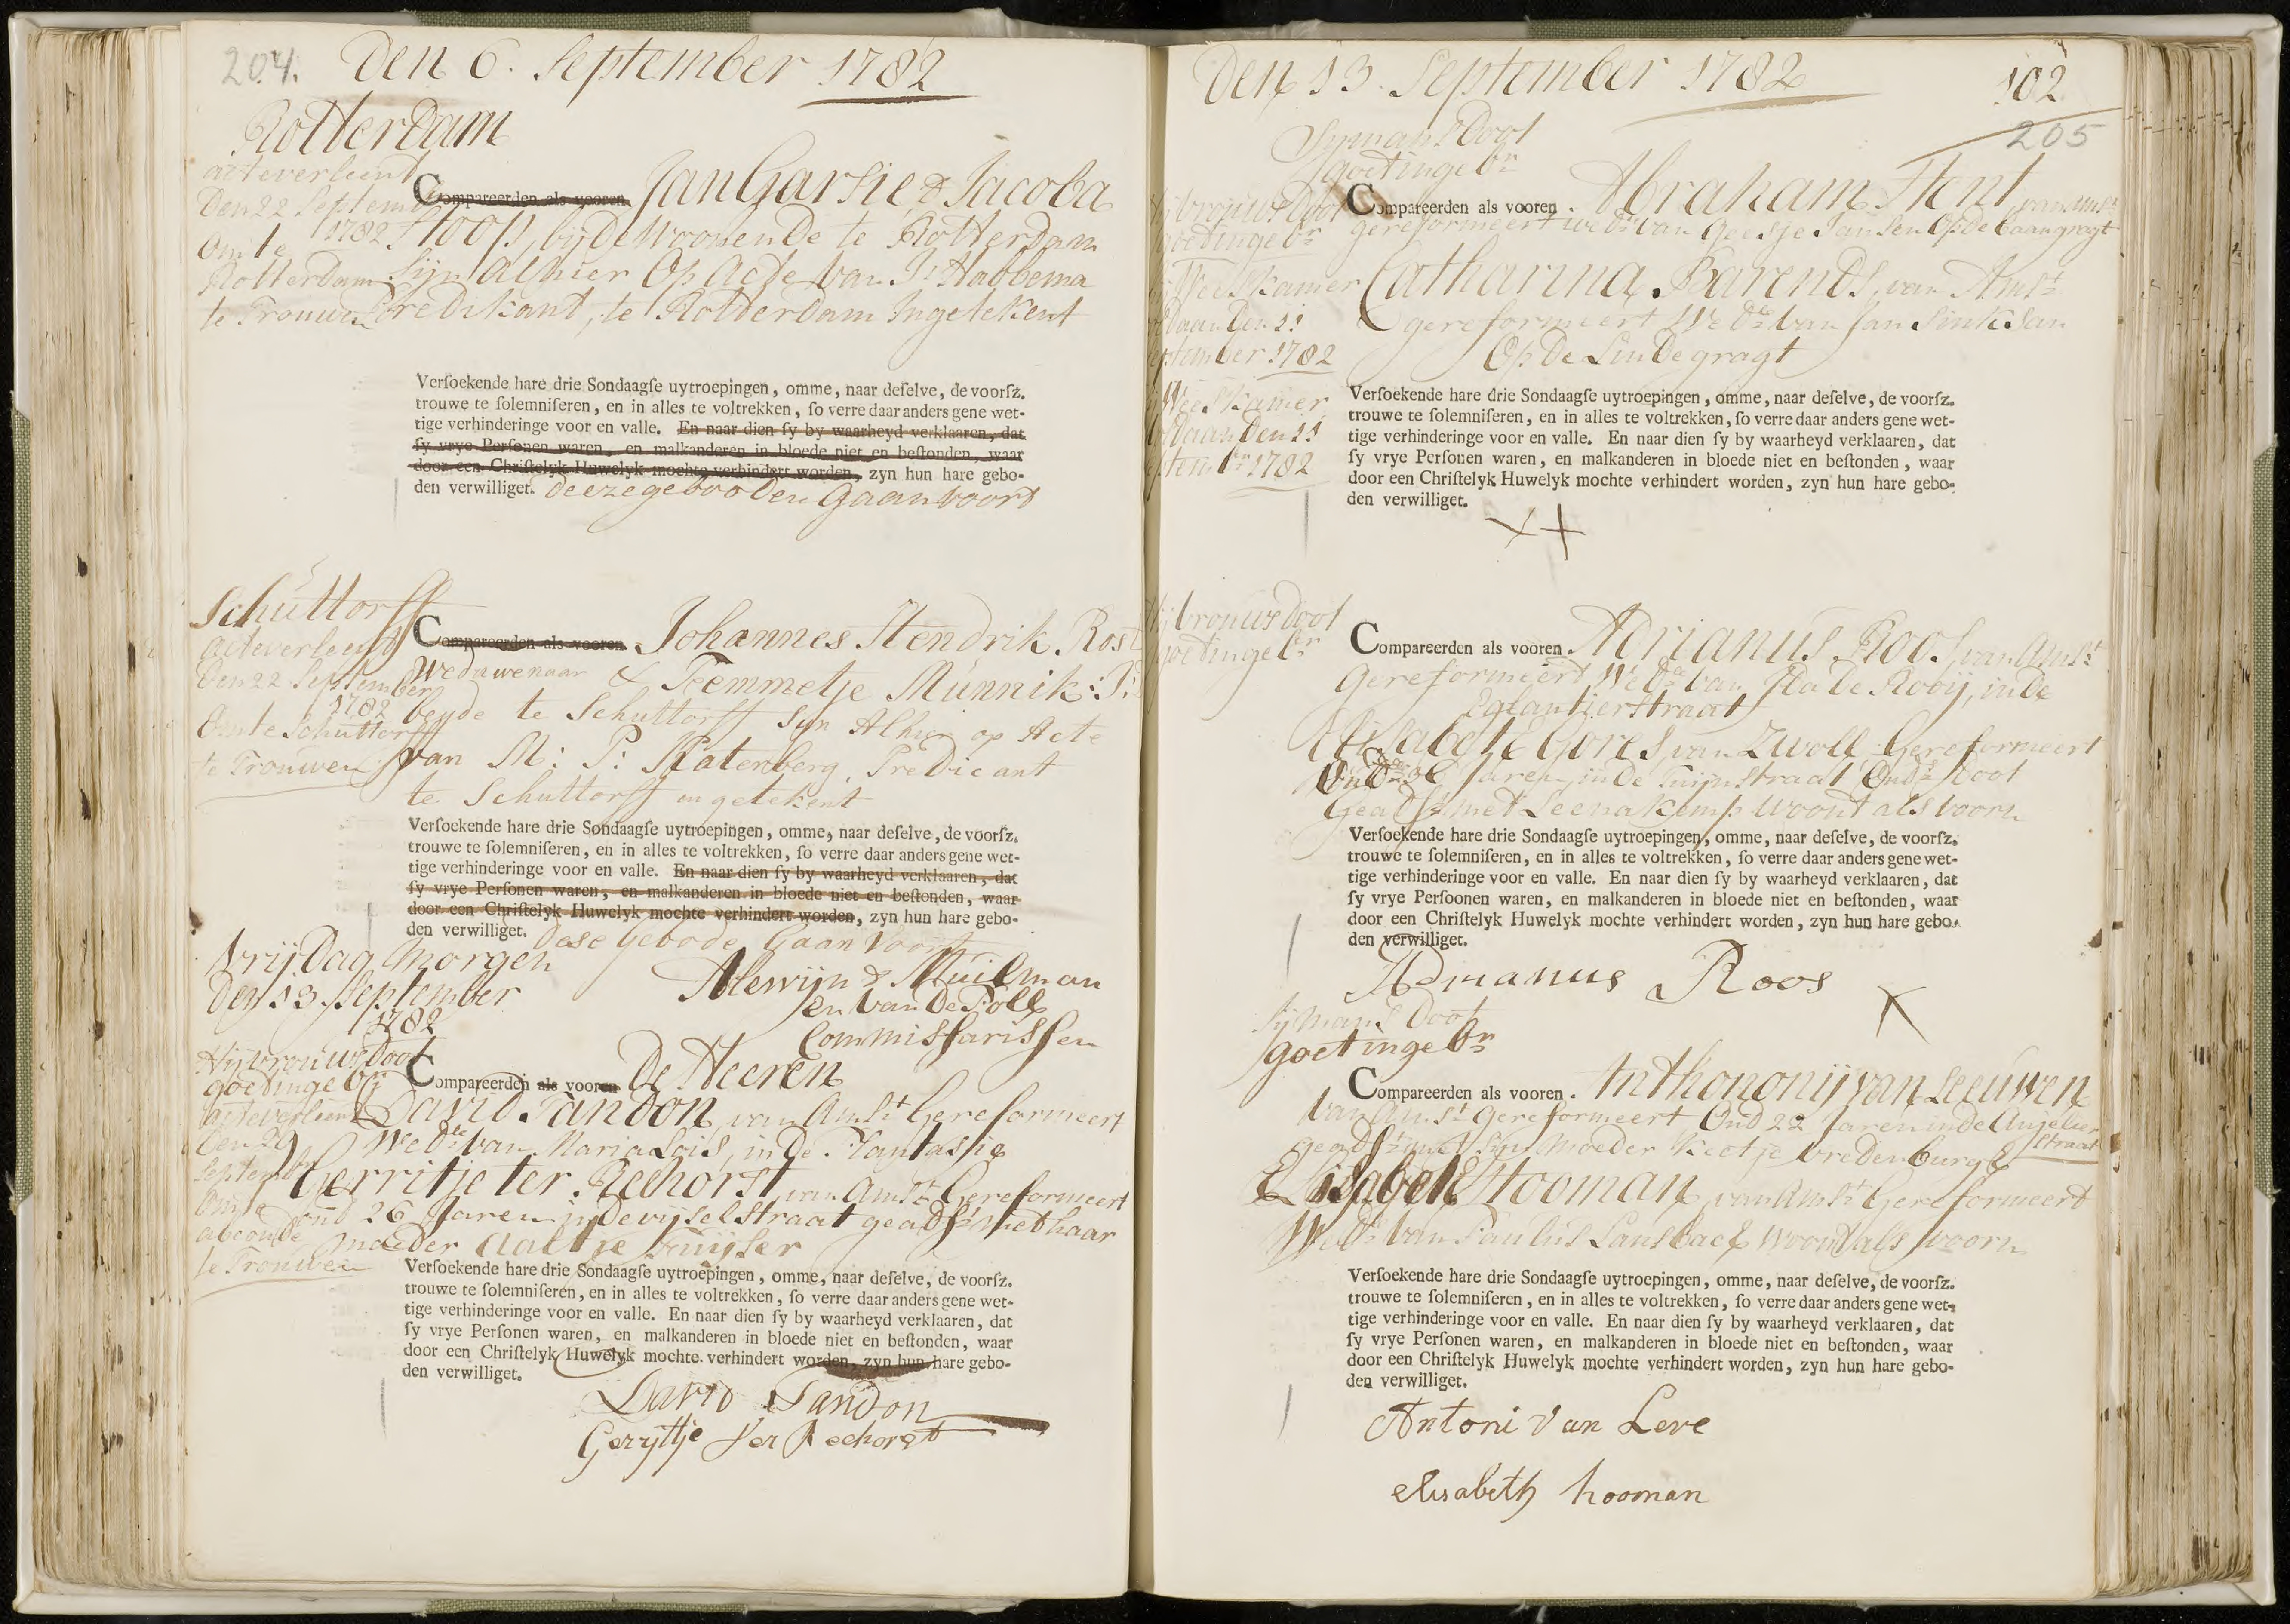 204.
Den 6. September 1782
Rotterdam
acte verleent
Den 22 Septemb
1782
Om te
Rotterdam
te Trouwen
Compareerden als vooren Jan Garsie, & Jacoba
Stoop, bijde Woonende te Rotterdam
Sijn Alhier Op Acte van Js Habbema
Predikant, te Rotterdam Ingetekent
Versoekende hare drie Sondaagse uytroepingen, omme, naar deselve, de voorsz.
trouwe te solemniseren, en in alles te voltrekken, so verre daar anders gene wet-
tige verhinderinge voor en valle. En naar dien sy by waarheyd verklaaren, dat
sy vrye Personen waren, en malkanderen in bloede niet en bestonden, waar
door een Christelyk Huwelyk mochte verhindert worden, zyn hun hare gebo-
den verwilliget. deeze gebooden Gaan voort
Schuttorff
acte verleent
Den 22 September
1782
Om te Schuttorff
te Trouwen
Compareerden als vooren Johannes Hendrik Rost
Weduwenaar & Temmetje Münnik: J:
beyde te Schuttorff Syn Alhier op Acte
van M: P: Katenberg, Predicant
te Schuttorff ingetekent
Versoekende hare drie Sondaagse uytroepingen, omme, naar deselve, de voorsz.
trouwe te solemniseren, en in alles te voltrekken, so verre daar anders gene wet-
tige verhinderinge voor en valle. En naar dien sy by waarheyd verklaaren, dat
sy vrye Personen waren, en malkanderen in bloede niet en bestonden, waar
door een Christelyk Huwelyk mochte verhindert worden, zyn hun hare gebo-
den verwilliget. Dese Gebode Gaan Voort
Vrijdag Morgen
Den 13 September
1782
Alewijn & Muilman
en van De Poll
Commissarissen
Hij vrouws Doot
goet ingebn
acte verleent
Den 29
Septemb
Om te
abcoude
te Trouwen
Compareerden als vooren De Heeren
David Tandon, van Amst Gereformeert
Wedr van Maria Lois, in de Fantasije
Gerritje ter Beehorst van Amst Gereformeert
oud 26 Jaren in de vijselstraat geadst met haar
moeder Aaltje Kuijser
Versoekende hare drie Sondaagse uytroepingen, omme, naar deselve, de voorsz.
trouwe te solemniseren, en in alles te voltrekken, so verre daar anders gene wet-
tige verhinderinge voor en valle. En naar dien sy by waarheyd verklaaren, dat
sy vrye Personen waren, en malkanderen in bloede niet en bestonden, waar
door een Christelyk Huwelyk mochte verhindert worden, zyn hun hare gebo-
den verwilliget.
David Tandon
Gerrytje ter Beehorst
Den 13 September 1782
102
205
Sij mans Doot
goet ingebn
Hij vrouws Doot
goet ingebn
Weeskamer
voldaan Den 11
September 1782
Weeskamer
voldaan Den 11
Septembr 1782
Compareerden als vooren. Abraham Stent, van Amst
gereformeert Wedr van Geesje Jansen Op de baangragt
Catharina Barends, van Amst
gereformeert Wede van Jan Sinksan
Op De Lindegragt
Versoekende hare drie Sondaagse uytroepingen, omme, naar deselve, de voorsz.
trouwe te solemniseren, en in alles te voltrekken, so verre daar anders gene wet-
tige verhinderinge voor en valle. En naar dien sy by waarheyd verklaaren, dat
sy vrye Personen waren, en malkanderen in bloede niet en bestonden, waar
door een Christelyk Huwelyk mochte verhindert worden, zyn hun hare gebo-
den verwilliget.
X +
Hij vrouws doot
goet ingebn
Compareerden als vooren. Adrianus Roos, van Amst
Gereformeert Wedr van Ida De Rooij, in de
Eglantierstraat
Elisabeth Gores, van Zwoll Gereformeert
Oud 36 Jaren in de Tuijnstraat Ouds Doot
Geadst met Leena Kemp woont als voorn
Versoekende hare drie Sondaagse uytroepingen, omme, naar deselve, de voorsz.
trouwe te solemniseren, en in alles te voltrekken, so verre daar anders gene wet-
tige verhinderinge voor en valle. En naar dien sy by waarheyd verklaaren, dat
sy vrye Persoonen waren, en malkanderen in bloede niet en bestonden, waar
door een Christelyk Huwelyk mochte verhindert worden, zyn hun hare gebo-
den verwilliget.
Adrianus Roos X
Sij mans Doot
goet ingebn
Compareerden als vooren. Anthononij van Leeuwen
van Amst Gereformeert Oud 22 Jaren in de Anjelier
straat
geadst met sijn Moeder Keetje vredenburg
Elisabeth Hooman, van Amst Gereformeert
Wede van Paulus Lansbaek Woont als voorn
Versoekende hare drie Sondaagse uytroepingen, omme, naar deselve, de voorsz.
trouwe te solemniseren, en in alles te voltrekken, so verre daar anders gene wet-
tige verhinderinge voor en valle. En naar dien sy by waarheyd verklaaren, dat
sy vrye Personen waren, en malkanderen in bloede niet en bestonden, waar
door een Christelyk Huwelyk mochte verhindert worden, zyn hun hare gebo-
den verwilliget.
Antoni van Leve
elisabeth hooman